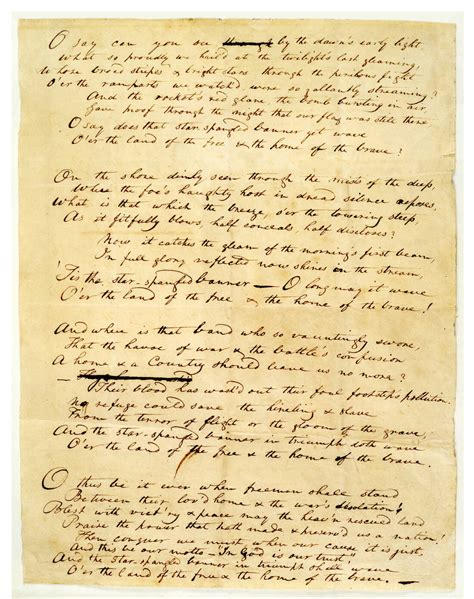 O say can you see ~~through~~ by the dawn's early light,
What so proudly we hail'd at the twilight's last gleaming,
Whose broad stripes & bright stars through the perilous fight
O'er the ramparts we watch'd were so gallantly streaming?
And the rocket's red glare, the bomb bursting in air,
Gave proof through the night that our flag was still there
O say does that star-spangled banner yet wave
O'er the land of the free & the home of the brave?
On the shore dimly seen through the mists of the deep,
Where the foe's haughty host in dread silence reposes,
What is that which the breeze, o'er the towering steep,
As it fitfully blows, half conceals, half discloses?
Now it catches the gleam of the morning's first beam,
In full glory reflected now shines in the stream,
'Tis the star-spangled banner — O long may it wave
O'er the land of the free & the home of the brave!
And where is that band who so vauntingly swore,
That the havoc of war & the battle's confusion
A home & a Country should leave us no more?
Their blood has wash'd out their foul footsteps pollution.
No refuge could save the hireling & slave
From the terror of flight or the gloom of the grave,
And the star-spangled banner in triumph doth wave
O'er the land of the free & the home of the brave.
O thus be it ever when freemen shall stand
Between their lov'd home & the war's desolation!
Blest with vict'ry & peace may the heav'n rescued land
Praise the power that hath made & preserv'd us a nation!
Then conquer we must, when our cause it is just,
And this be our motto — In God is our trust,
And the star-spangled banner in triumph shall wave
O'er the land of the free & the home of the brave. —